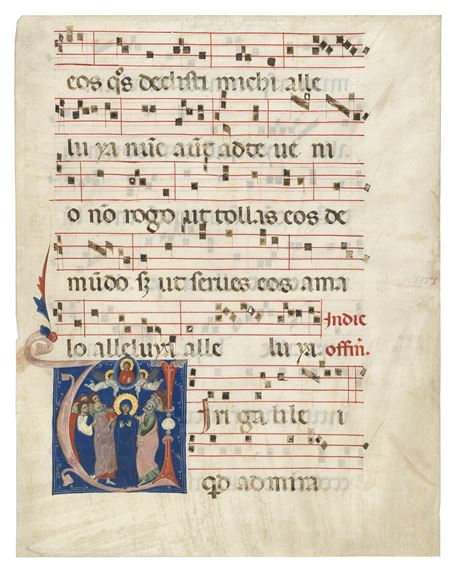 eos q̄s dedisti michi alle
lu ya nūc aūt̄ ad te ue ni
o nō rogo ut tollas eos de
mūdo sꝫ ut serues eos a ma
lo alleluya alle lu ya.
In die
offm̄.
Uiri galile i
qd admira